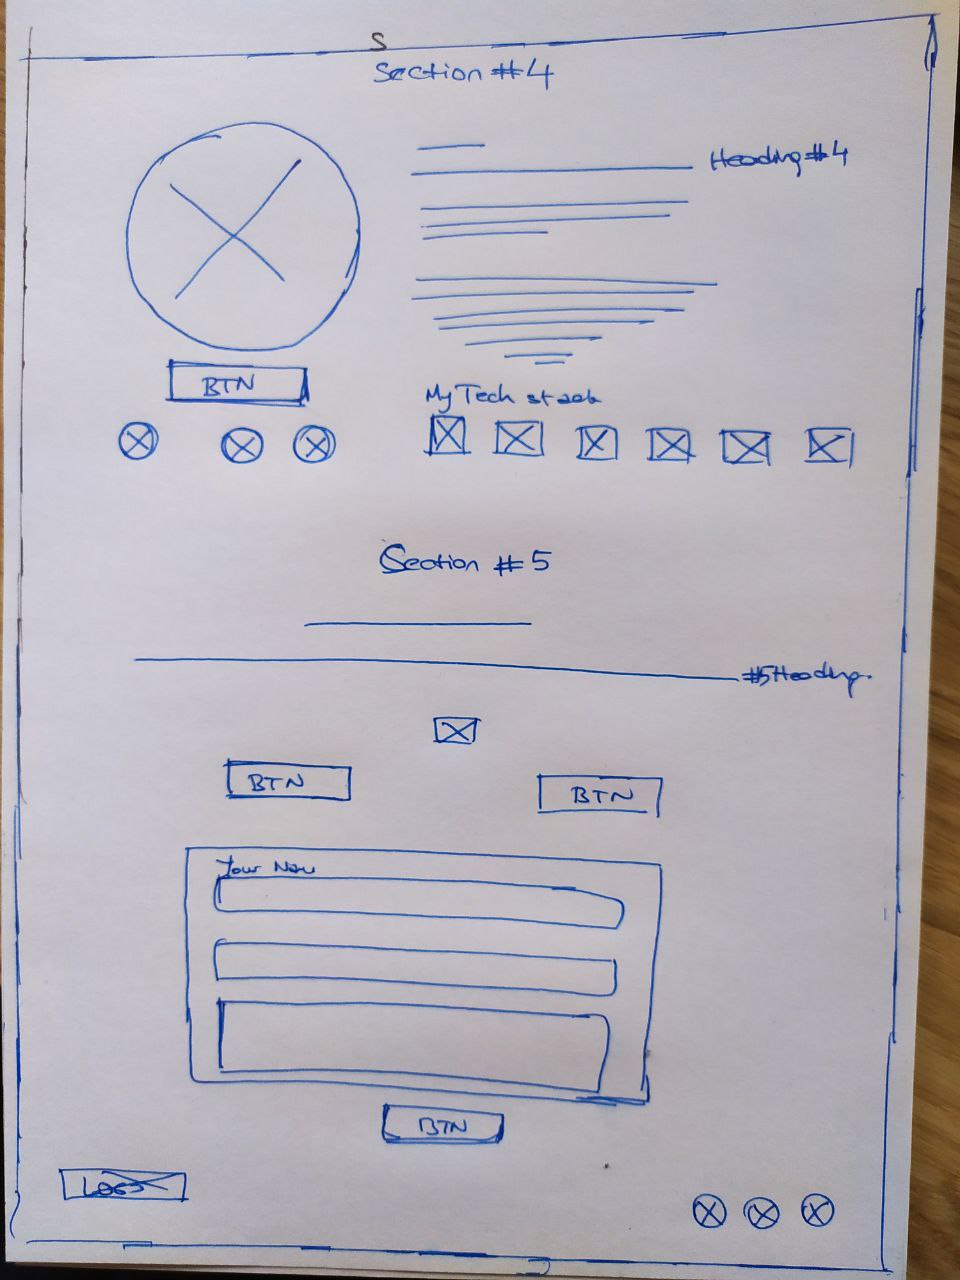 S
Section #4
Heading #4
BTN
My Tech stack
Section #5
#5 Heading
BTN
BTN
Your Name
BTN
LOGO